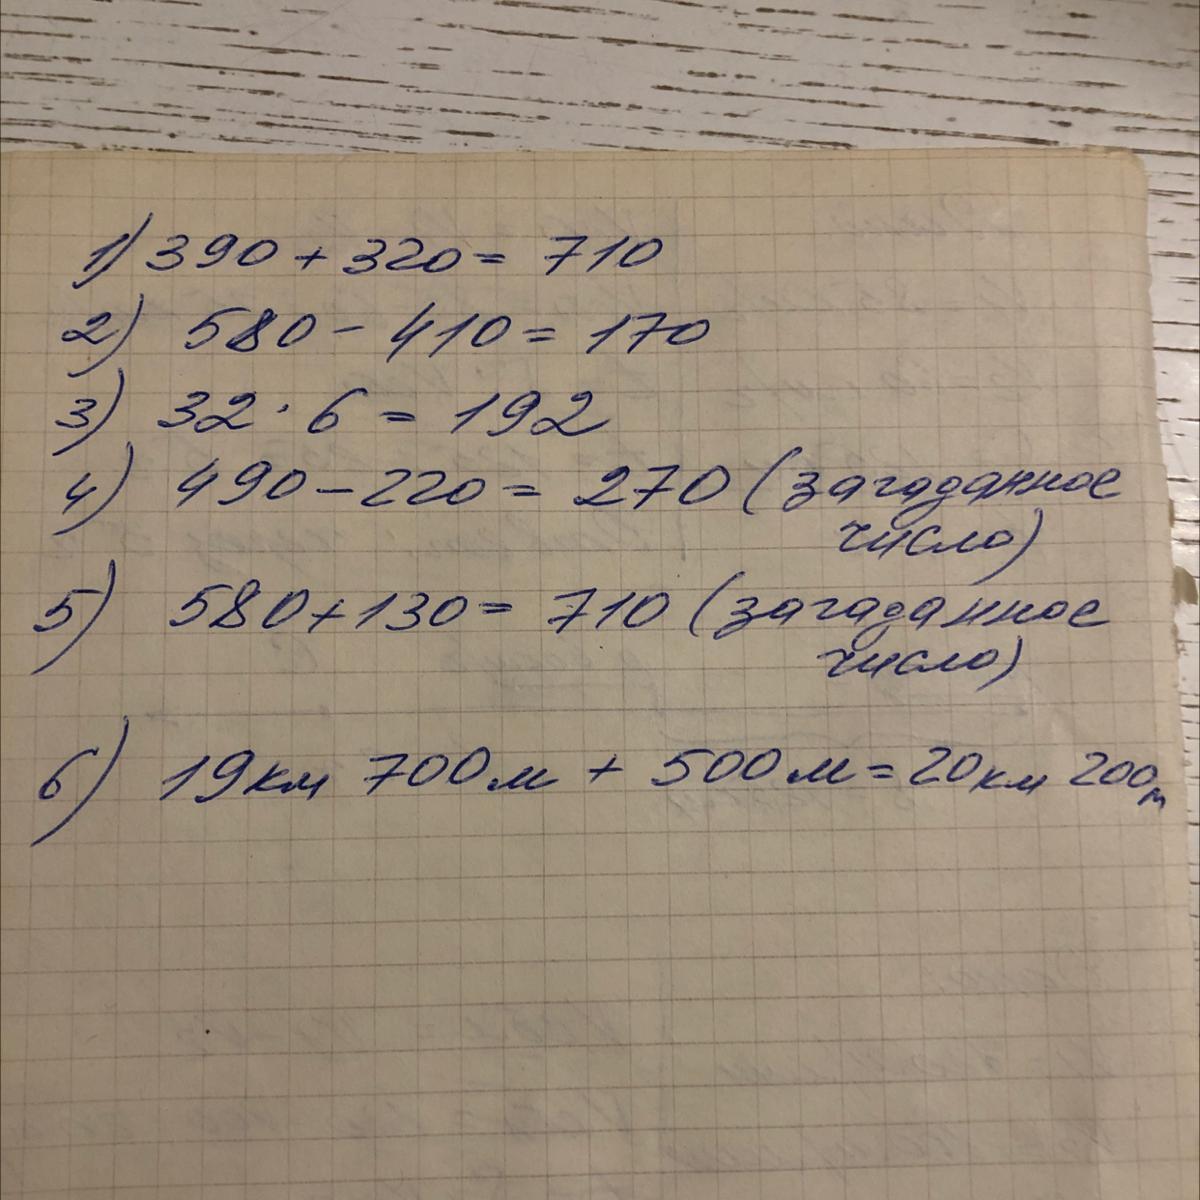 1) 390 + 320 = 710
2) 580 - 410 = 170
3) 32 · 6 = 192
4) 490 - 220 = 270 (загаданное
число)
5) 580 + 130 = 710 (загаданное
число)
6) 19 км 700 м + 500 м = 20 км 200 м